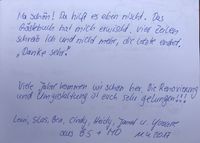 Na schön! Da hilft es eben nischt. Das
Gästebuch hat mich erwischt. Vier Zeilen
schreib ich und nicht mehr, die letzte endet,
"Danke sehr."
Viele Jahre kommen wir schon her. Die Renovierung
und Umgestaltung ist euch sehr gelungen!!!
Ben, Cindy, Heidy, u. Yvonne
aus BS + MD 2017